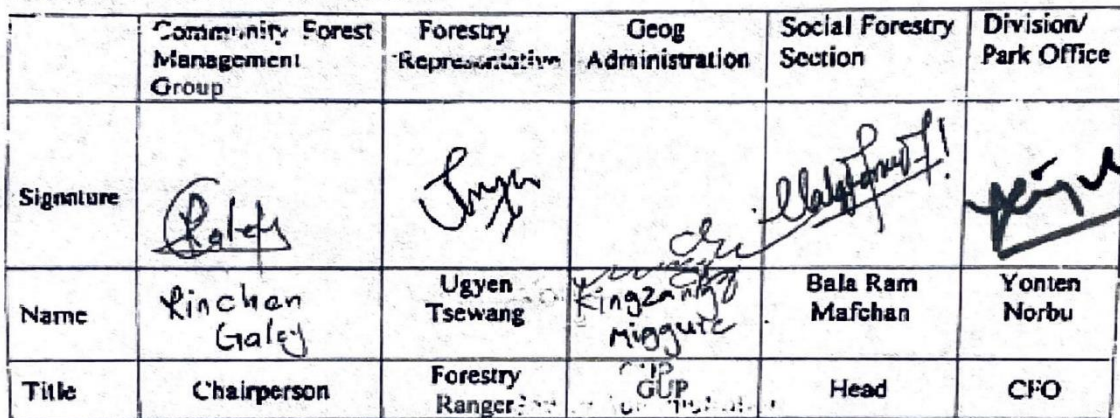 Community Forest Management Group
Forestry Representative
Geog Administration
Social Forestry Section
Division/ Park Office
Signature
Name
Rinchen Galey
Ugyen Tsewang
Kingzang
Bala Ram Mafchan
Yonten Norbu
Title
Chairperson
Forestry Ranger
GUP
Head
CFO